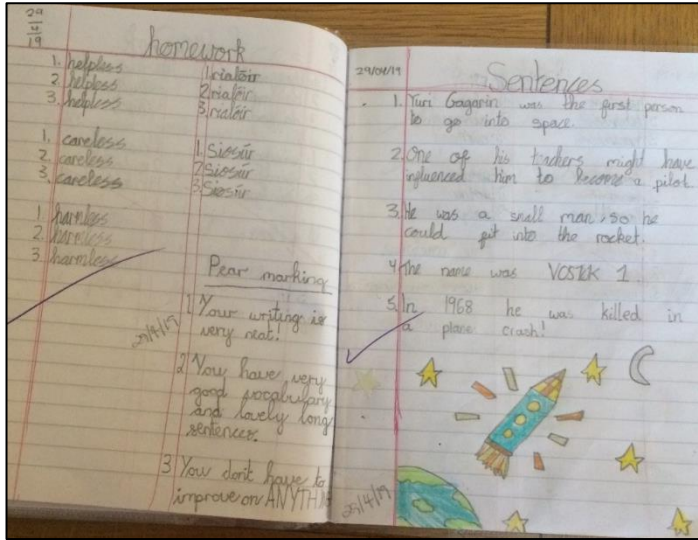 29
4
19
homework
1. helpless
2. helpless
3. helpless
1. rialóir
2. rialóir
3. rialóir
1. careless
2. careless
3. careless
1. Siosúr
2. Siosúr
3. Siosúr
1 harmless
2. harmless
3. harmless
Pear marking
1 Your writing is
very neat!
2 You have very
good vocabulary
and lovely long
sentences.
3 You don't have to
improve on ANYTHIN
25/4/19
29/04/19
Sentences
1. Yuri Gagarin was the first person
to go into space
2. One of his teachers might have
influenced him to become a pilot.
3. He was a small man, so he
could fit into the rocket.
4 The name was VOSTOK 1
5. In 1968 he was killed in
a plane crash!
25/4/19